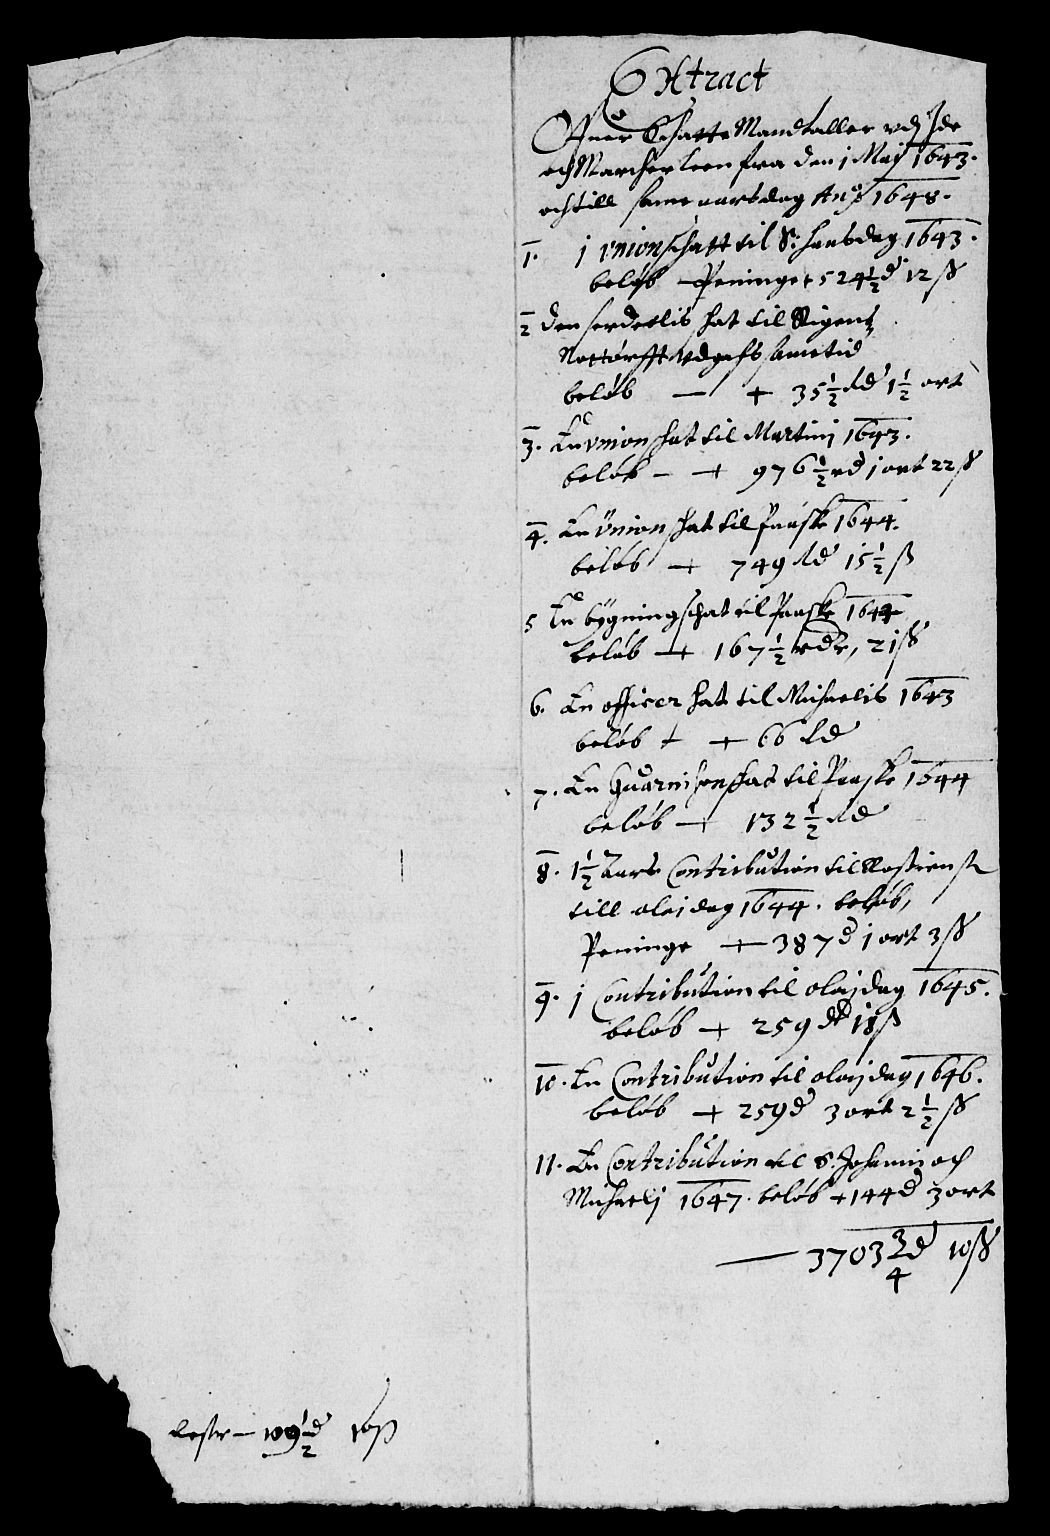 Extract
Offuer Schatte Mandtaller vdj Ide
och Marcher leen fra den 1 Maij 1643.
och till samme aarsdag Anno 1648.
1. j vnionschatt til S: hansdag 1643.
beløb — Peninge + 524½ d 12 ß
2 den serdeelis skat til Rigens
Nottørfft vdgafs sametid
beløb — + 35½ Rd 1½ ort
3. En vnionskat til Martinj 1643.
beløb — + 976½ rd j ort 22 ß
4. En Vnionskat til Paaske 1644.
beløb + 749 Rd 15½ ß
5 En bygningschat til Paaske 1644
beløb + 167½ rdr, 21 ß
6. En officerskat til Michaelis 1643
beløb + + 66 Rd
7. En Guarnisonskat til Paaske 1644
beløb + 132½ Rd
8. 1½ Aars Contribution til
till olaj dag 1644. beløb,
Peninge + 387 d j ort 3 ß
9. j Contribution til olaj dag 1645.
beløb + 259 d ß
10. En Contribution til olaij dag 1646.
beløb + 259 d 3 ort 2½ ß
11. En Contribution til S: Johannis och
Michaelj 1647. beløb + 144 d 3 ort
— 3703¾ d 10 ß
Rester — 109½ d 16 ß